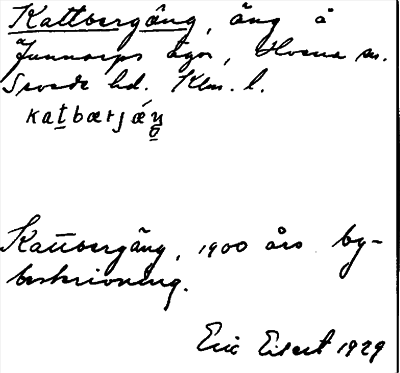 Kattbergäng, äng å
Junnarps ägor, Hvena sn.
Sevede hd. Klm. l.
Kattbergäng, 1900 års by-
beskrivning.
Eric Elsert 1929